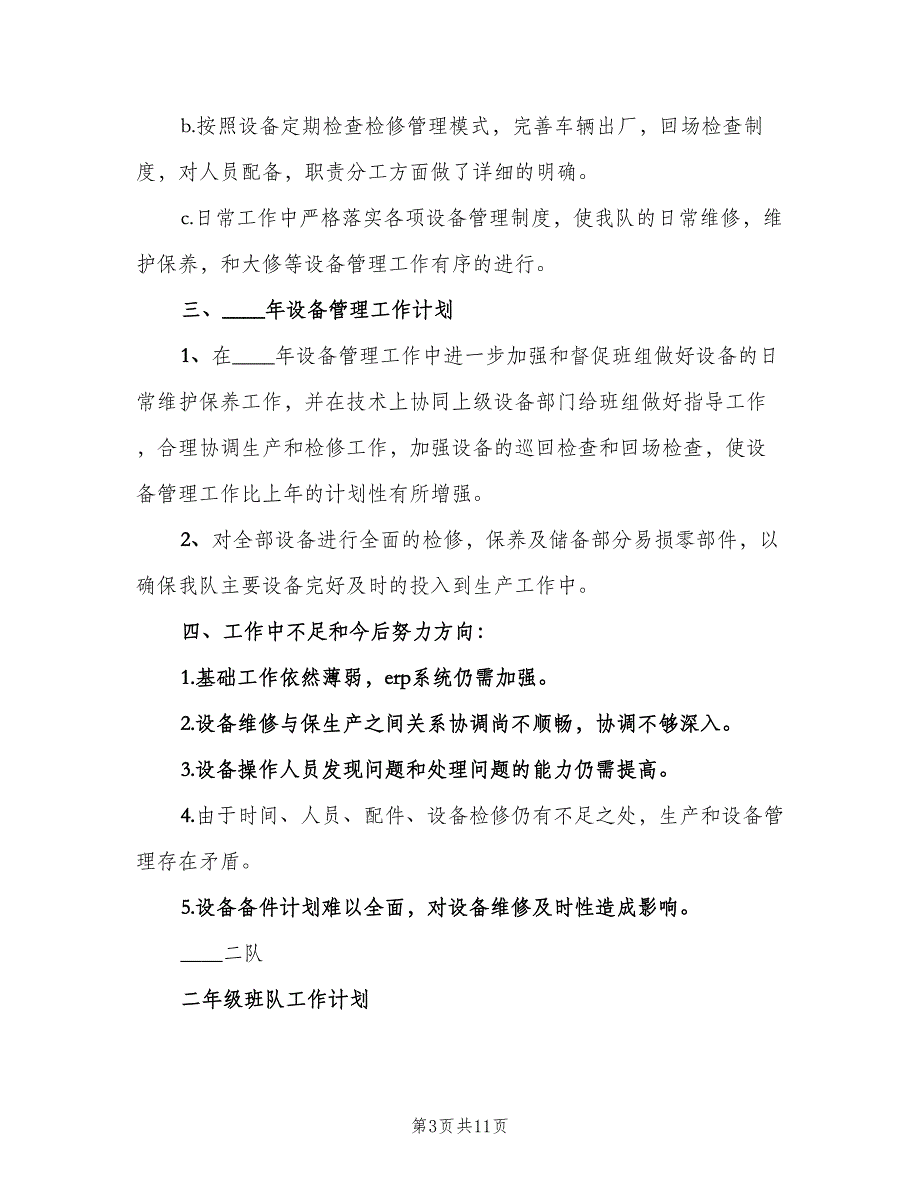 b.按照设备定期检查检修管理模式，完善车辆出厂，回场检查制
度，对人员配备，职责分工方面做了详细的明确。
c.日常工作中严格落实各项设备管理制度，使我队的日常维修，维
护保养，和大修等设备管理工作有序的进行。
三、____年设备管理工作计划
1、在____年设备管理工作中进一步加强和督促班组做好设备的日
常维护保养工作，并在技术上协同上级设备部门给班组做好指导工作
，合理协调生产和检修工作，加强设备的巡回检查和回场检查，使设
备管理工作比上年的计划性有所增强。
2、对全部设备进行全面的检修，保养及储备部分易损零部件，以
确保我队主要设备完好及时的投入到生产工作中。
四、工作中不足和今后努力方向：
1.基础工作依然薄弱，erp系统仍需加强。
2.设备维修与保生产之间关系协调尚不顺畅，协调不够深入。
3.设备操作人员发现问题和处理问题的能力仍需提高。
4.由于时间、人员、配件、设备检修仍有不足之处，生产和设备管
理存在矛盾。
5.设备备件计划难以全面，对设备维修及时性造成影响。
____二队
二年级班队工作计划
第3页共11页